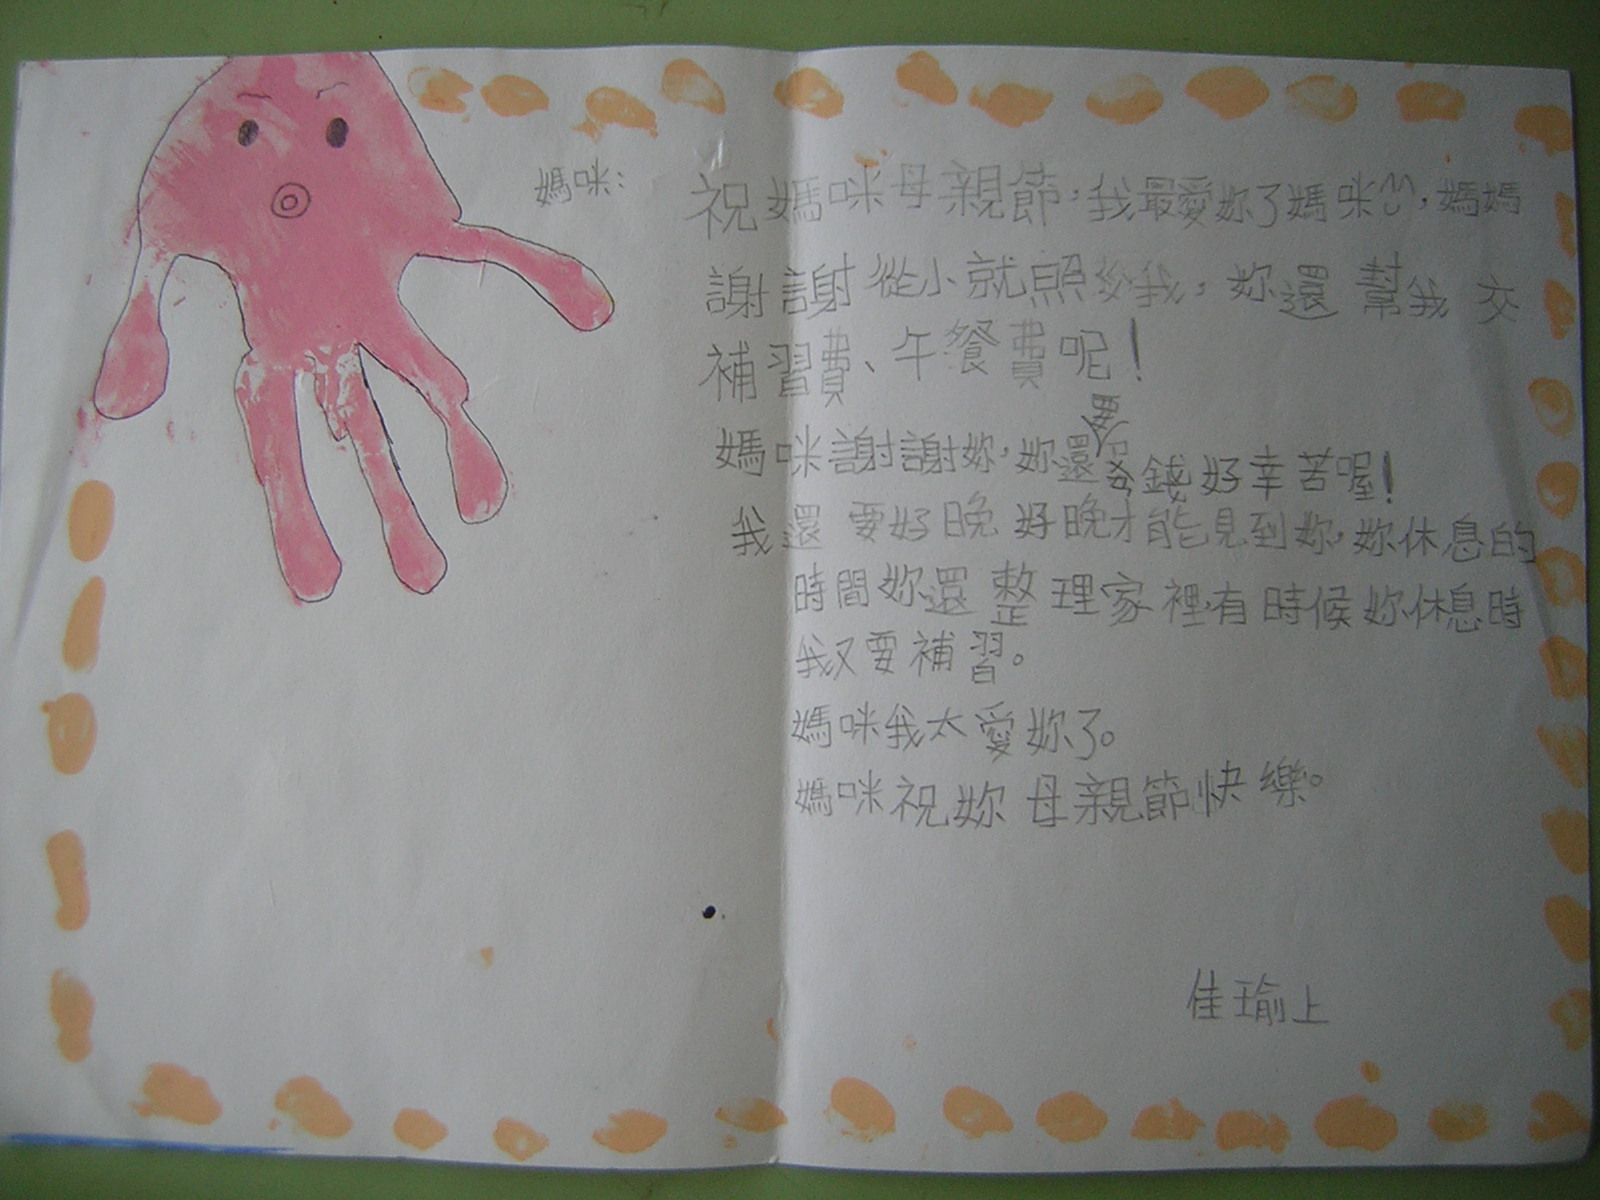 媽咪:
祝媽咪母親節,我最愛妳了媽咪,媽媽
謝謝從小就照我,妳還幫我交
補習費、午餐費呢!
媽咪謝謝妳,妳還要錢好幸苦喔!
我還要好晚好晚才能見到妳,妳休息的
時間妳還整理家裡,有時候妳休息時
我又要補習。
媽咪我太愛妳了。
媽咪祝妳母親節快樂。
佳瑜上